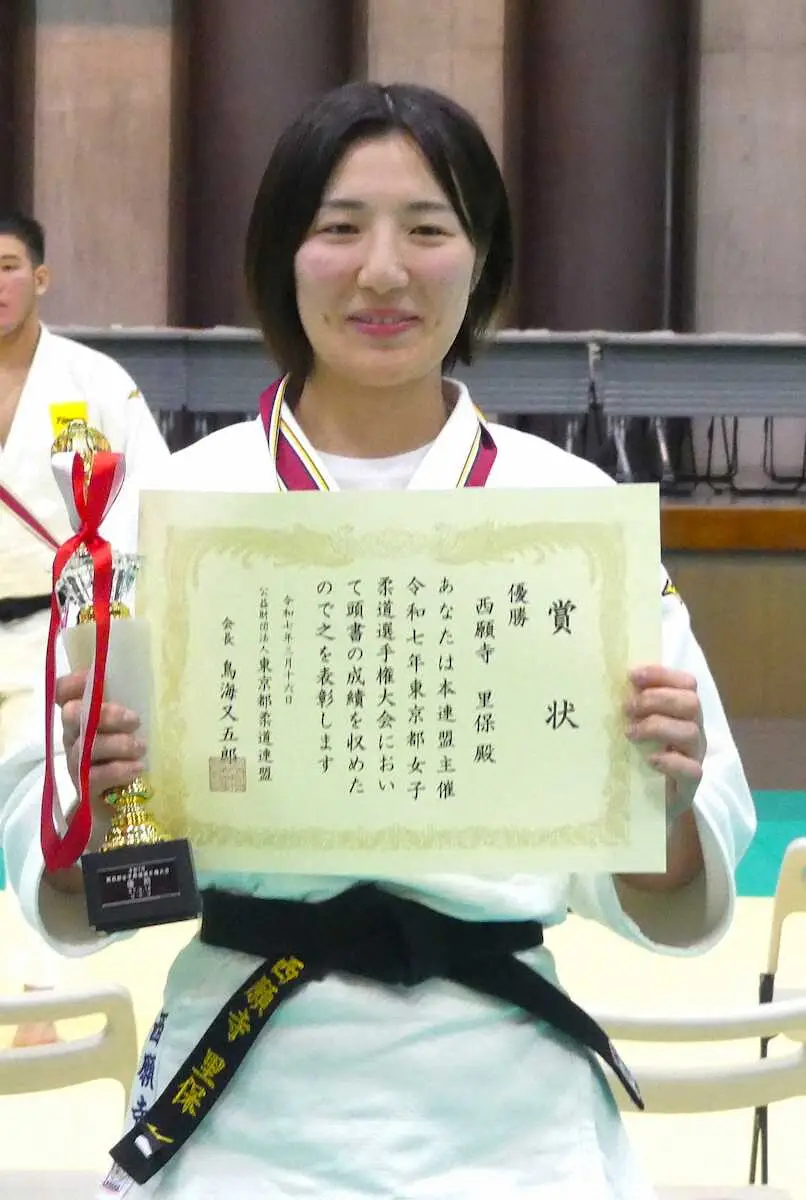 賞状
優勝
西願寺 里保殿
あなたは本連盟主催
令和七年東京都女子
柔道選手権大会におい
て頭書の成績を収めた
ので之を表彰します
令和七年三月十六日
公益財団法人東京都柔道連盟
会長 鳥海又五郎
西願寺 里保
西願寺